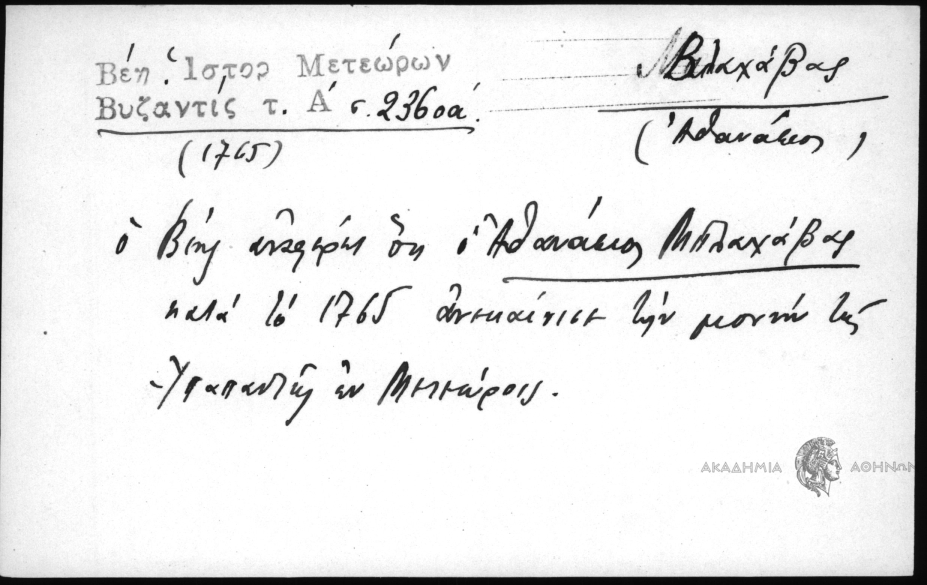 Βέη Ἱστορ Μετεώρων
Βυζαντίς τ. Α΄ σ. 236 σα΄.
(1765)
Βλαχάβας
(Ἀθανάσιος)
ὁ Βέης ἀναφέρει ὅτι ὁ Ἀθανάσιος Μπλαχάβας
κατά τό 1765 ἀνεκαίνισε τήν μονήν τῆς
Ὑπαπαντῆς ἐν Μετεώροις.
ΑΚΑΔΗΜΙΑ ΑΘΗΝΩΝ